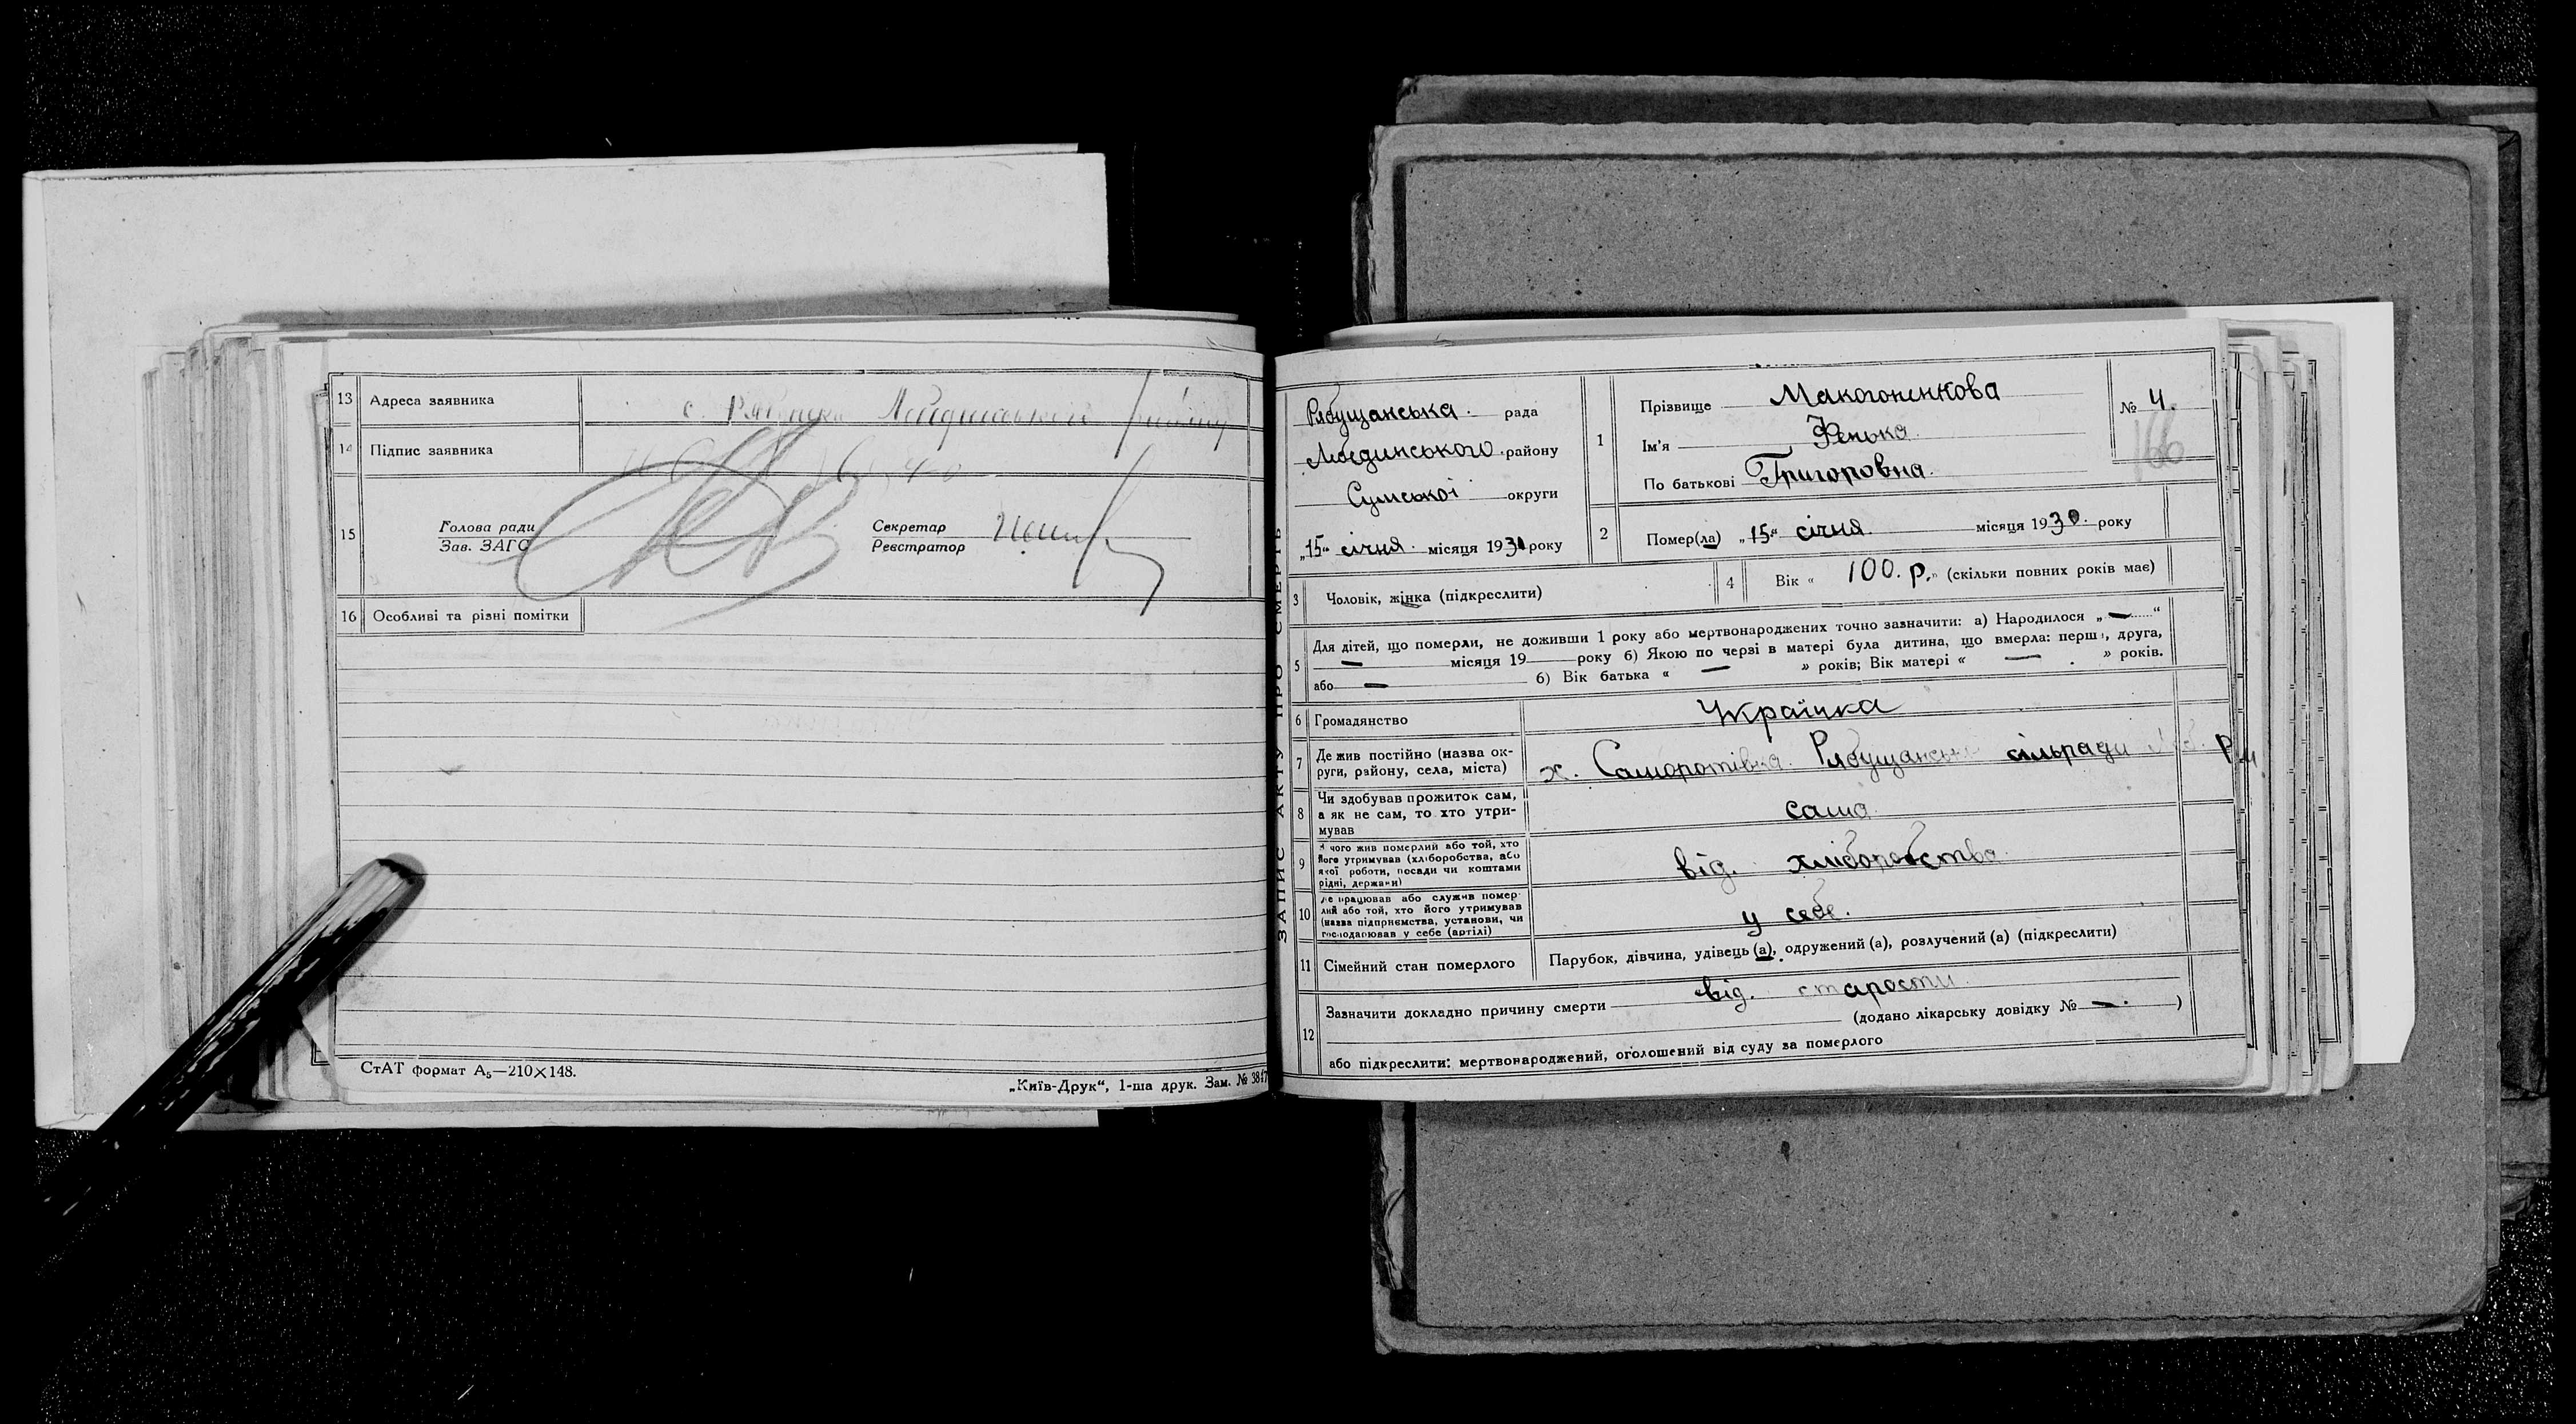 13 Адреса заявника с. Рябушки Лебединського району
14 Підпис заявника
15 Голова ради
Зав. ЗАГС
Секретар
Реєстратор
16 Особливі та різні помітки
СтАТ формат А₅—210×148.
„Київ-Друк“, 1-ша друк. Зам. № 3817
ЗАПИС АКТУ ПРО СМЕРТЬ
Рябущанська рада
Лебединського району
Сумської округи
„15“ січня місяця 1930 року
1 Прізвище Макогоненкова
Ім'я Фенька
По батькові Григоровна
№ 4.
166
2 Помер(ла) „15“ січня місяця 1930. року
3 Чоловік, жінка (підкреслити)
4 Вік « 100. р. » (скільки повних років має)
5 Для дітей, що померли, не доживши 1 року або мертвонароджених точно зазначити: а) Народилося „—“
— місяця 19 року б) Якою по черзі в матері була дитина, що вмерла: перша, друга,
або — б) Вік батька « — » років; Вік матері « — » років.
6 Громадянство Українка
7 Де жив постійно (назва ок-
руги, району, села, міста) х. Саморотівка Рябущанськ сільради
8 Чи здобував прожиток сам,
а як не сам, то хто утри-
мував сама
9 З чого жив померлий або той, хто
його утримував (хліборобства, або
якої роботи, посади чи коштами
рідні, держави) від. хліборобства
10 Де працював або служив помер-
лий або той, хто його утримував
(назва підприємства, установи, чи
господарював у себе (артілі) у себе.
11 Сімейний стан померлого Парубок, дівчина, удівець (а), одружений (а), розлучений (а) (підкреслити)
12 Зазначити докладно причину смерти від. старости
(додано лікарську довідку № —. )
або підкреслити: мертвонароджений, оголошений від суду за померлого